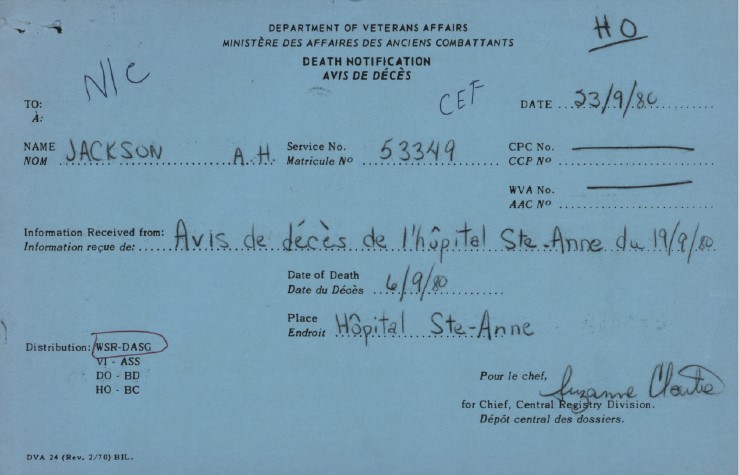 DEPARTMENT OF VETERANS AFFAIRS
MINISTÈRE DES AFFAIRES DES ANCIENS COMBATTANTS
HO
DEATH NOTIFICATION
AVIS DE DÉCÈS
N/C
CEF
TO:
À:
DATE 23/9/80
NAME JACKSON A.H. Service No. 53349 CPC No.
NOM Matricule Nº CCP Nº
WVA No.
AAC Nº
Information Received from: Avis de décès de l'hôpital Ste-Anne du 19/9/80
Information reçue de:
Date of Death 6/9/80
Date du Décès
Place Hôpital Ste-Anne
Endroit
Distribution: WSR-DASG
VI - ASS
DO - BD
HO - BC
Pour le chef, Suzanne
for Chief, Central Registry Division.
Dépôt central des dossiers.
DVA 24 (Rev. 2/70) BIL.